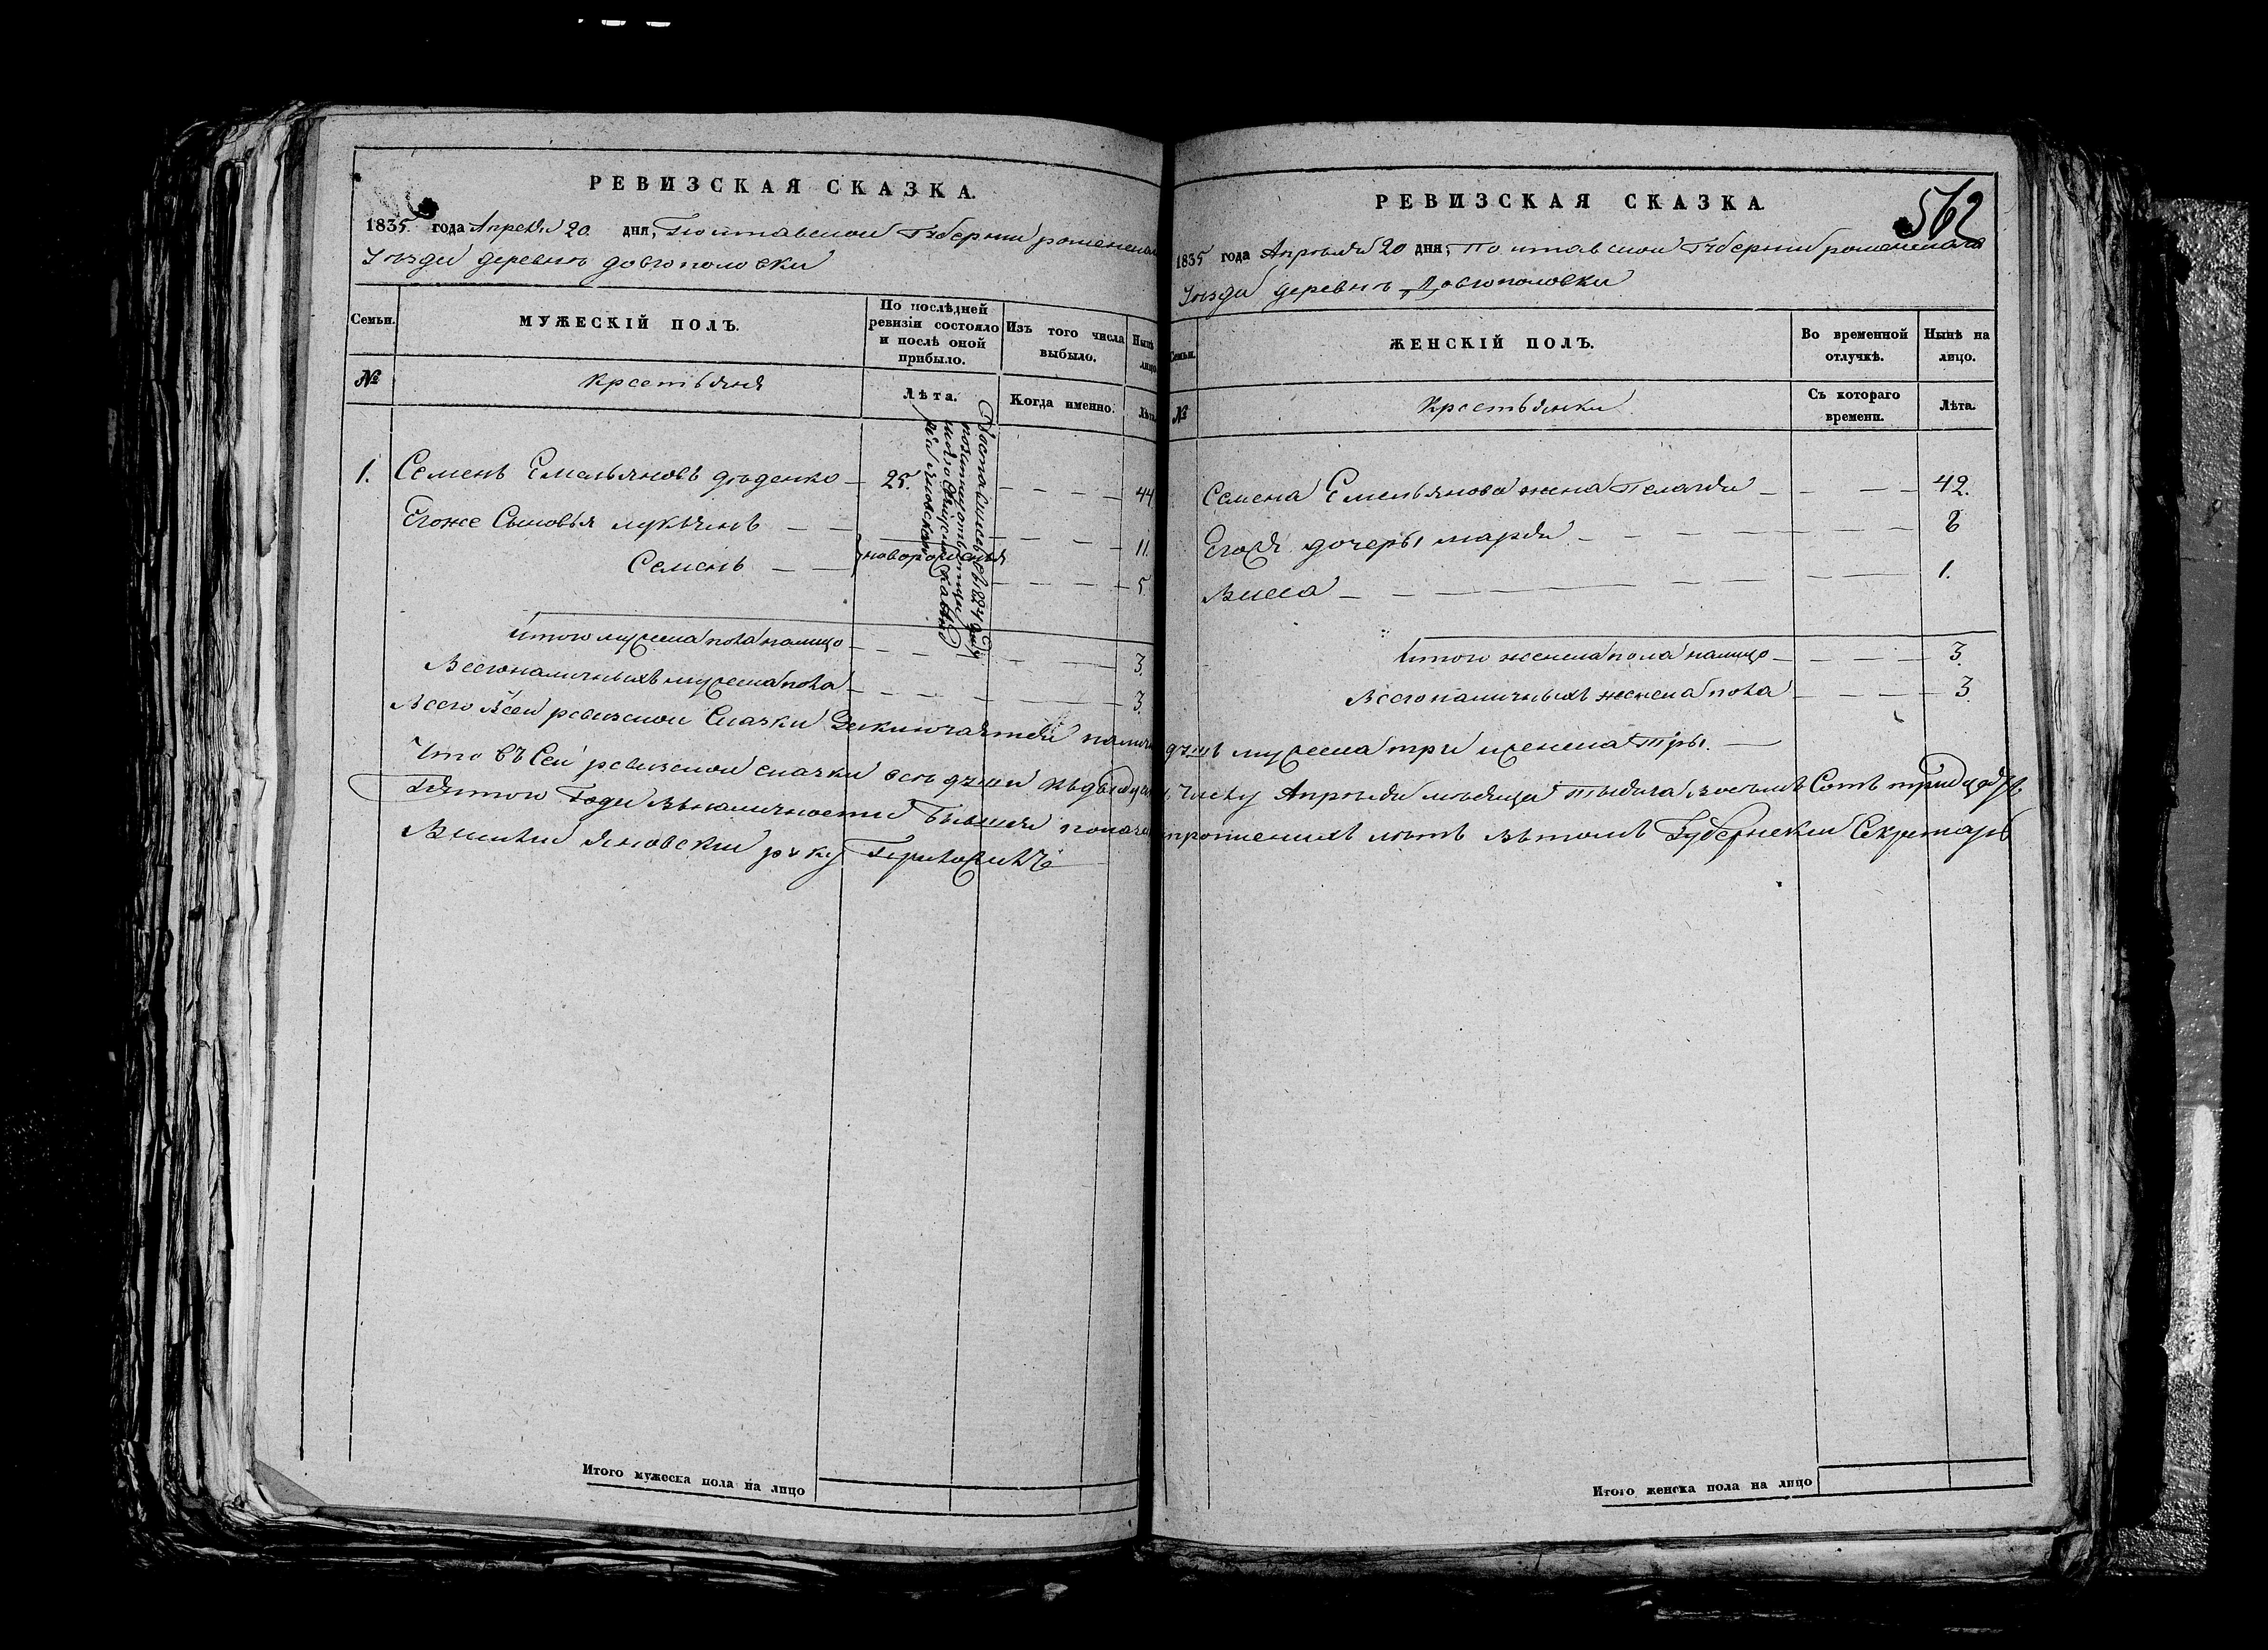 РЕВИЗСКАЯ СКАЗКА.
1835. года Апреля 20. дня, Полтавской Губернии роменскаго
Уезда деревни довгополовки
Семьи.
МУЖЕСКІЙ ПОЛЪ.
По послѣдней ревизіи состояло и послѣ оной прибыло.
Изъ того числа выбыло.
Нынѣ на лицо.
№
Крестьяня
Лѣта.
Когда именно.
Лѣта.
1. Семенъ Емельяновъ дѣденко 25. 44
Егоже Сыновья лукьянъ 11.
Семенъ новорожденыя 5.
Итого мужеска пола налицо 3.
Всего наличныхъ мужеска пола 3.
РЕВИЗСКАЯ СКАЗКА
562
1835 года Апрѣля 20 дня, Полтавской Губернии роменскаго
Уезда деревнѣ Довгополовки
Семьи.
ЖЕНСКІЙ ПОЛЪ.
Во временной отлучкѣ.
Нынѣ на лицо.
№
Крестьянки
Съ котораго времени.
Лѣта.
Семена Емельянова жена Пелагия 42.
дочеры мария 8
Васса 1.
Итого женска пола налицо 3.
Всего наличныхъ женска пола 3.
Всего Всей ревизской Сказки Заключается душъ мужеска три женска Тры.
Что въ Сей ревизской сказки всѣ души числу Апрѣля мѣсяца Тысяча восемъ Сотъ тридцать
Пятого Года въ наличности Бывшия прошенихъ лѣтъ вѣтомъ Губернский Секретарь
Яновский руку Приложилъ
Итого мужеска пола на лицо
Итого женска пола на лицо